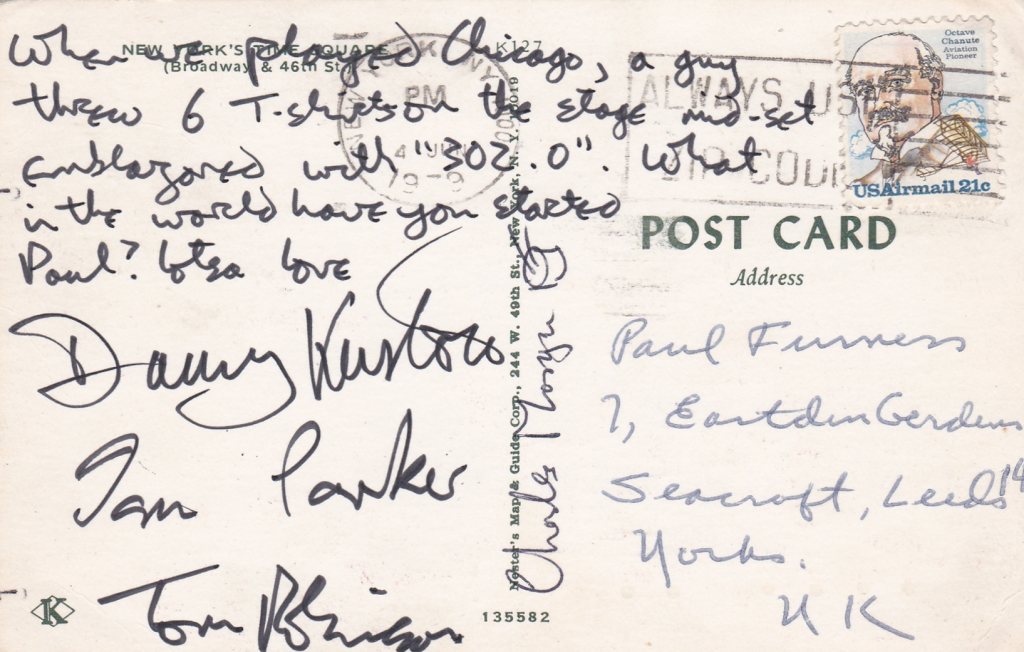 NEW YORK'S TIME SQUARE
(Broadway & 46th St
K127
When we played Chicago, a guy
threw 6 T-shirts on the stage mid-set
emblazoned with "302.0". What
in the world have you started
Paul? Lotsa love
Danny Kustow
Ian Parker
Tom Robinson
K
Nester's Map & Guide Corp., 244 W. 49th St., New York, N. Y. 10019
Charlie Morgan
135582
NY
PM
ALWAYS USE
ZIP CODE
Octave
Chanute
Aviation
Pioneer
USAirmail 21c
POST CARD
Address
Paul Furness
7, Eastdean Gardens
Seacroft, Leeds 14
Yorks.
UK